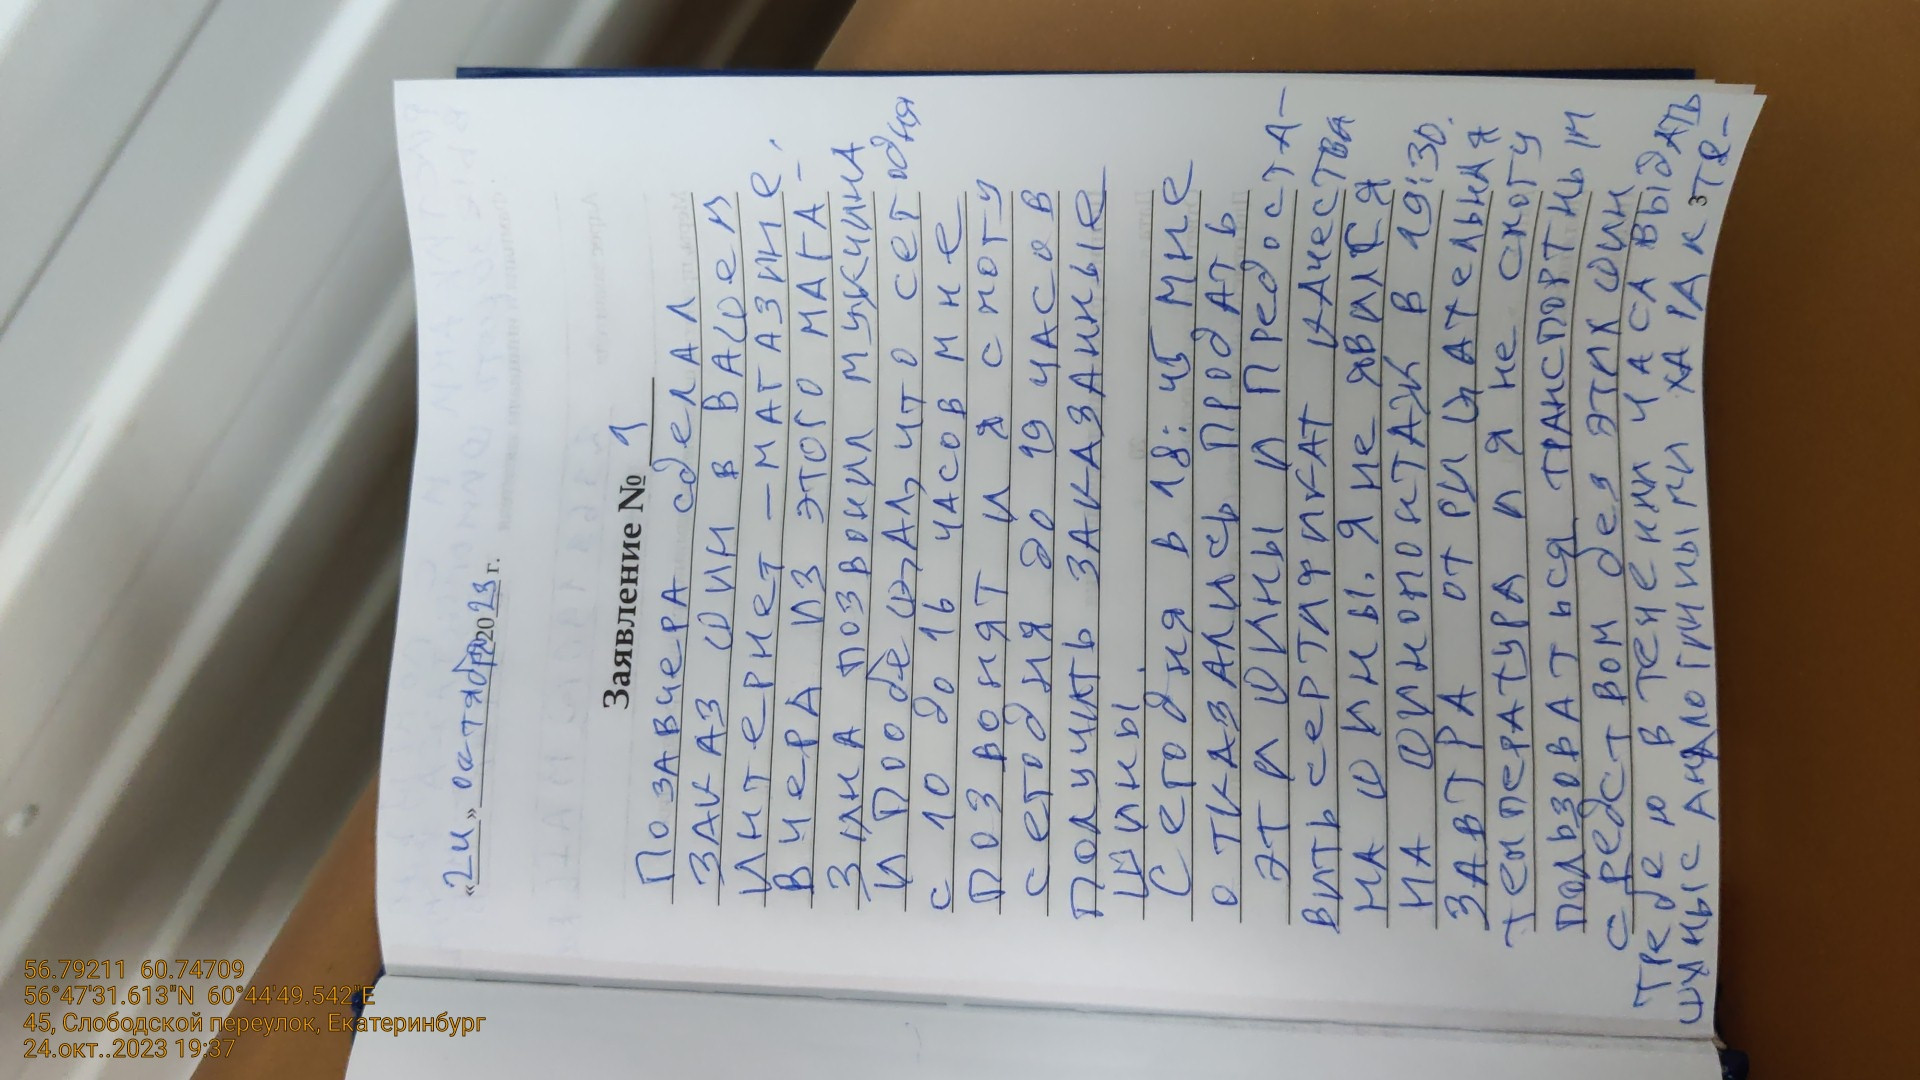 56.79211 60.74709
56°47'31.613"N 60°44'49.542"E
45, Слободской переулок, Екатеринбург
24.окт..2023 19:37
«24» октября 2023 г.
Заявление № 1
Позавчера сделал
заказ шин в вашем
интернет-магазине.
Вчера из этого мага-
зина позвонил мужчина
и пообещал, что сегодня
с 10 до 16 часов мне
позвонят и я смогу
сегодня до 19 часов
получить заказанные
шины.
Сегодня в 18:45 мне
отказались продать
эти шины и предоста-
вить сертификат качества
на шины. Я не явился
на шиномонтаж в 19:30.
Завтра отрицательная
температура и я не смогу
пользоваться транспортным
средством без этих шин
Требую в течении часа выдать
шины с аналогичными характе-
3